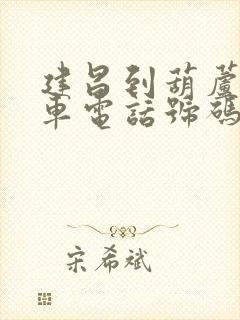 建昌到葫蘆
車電話號碼
宋希斌